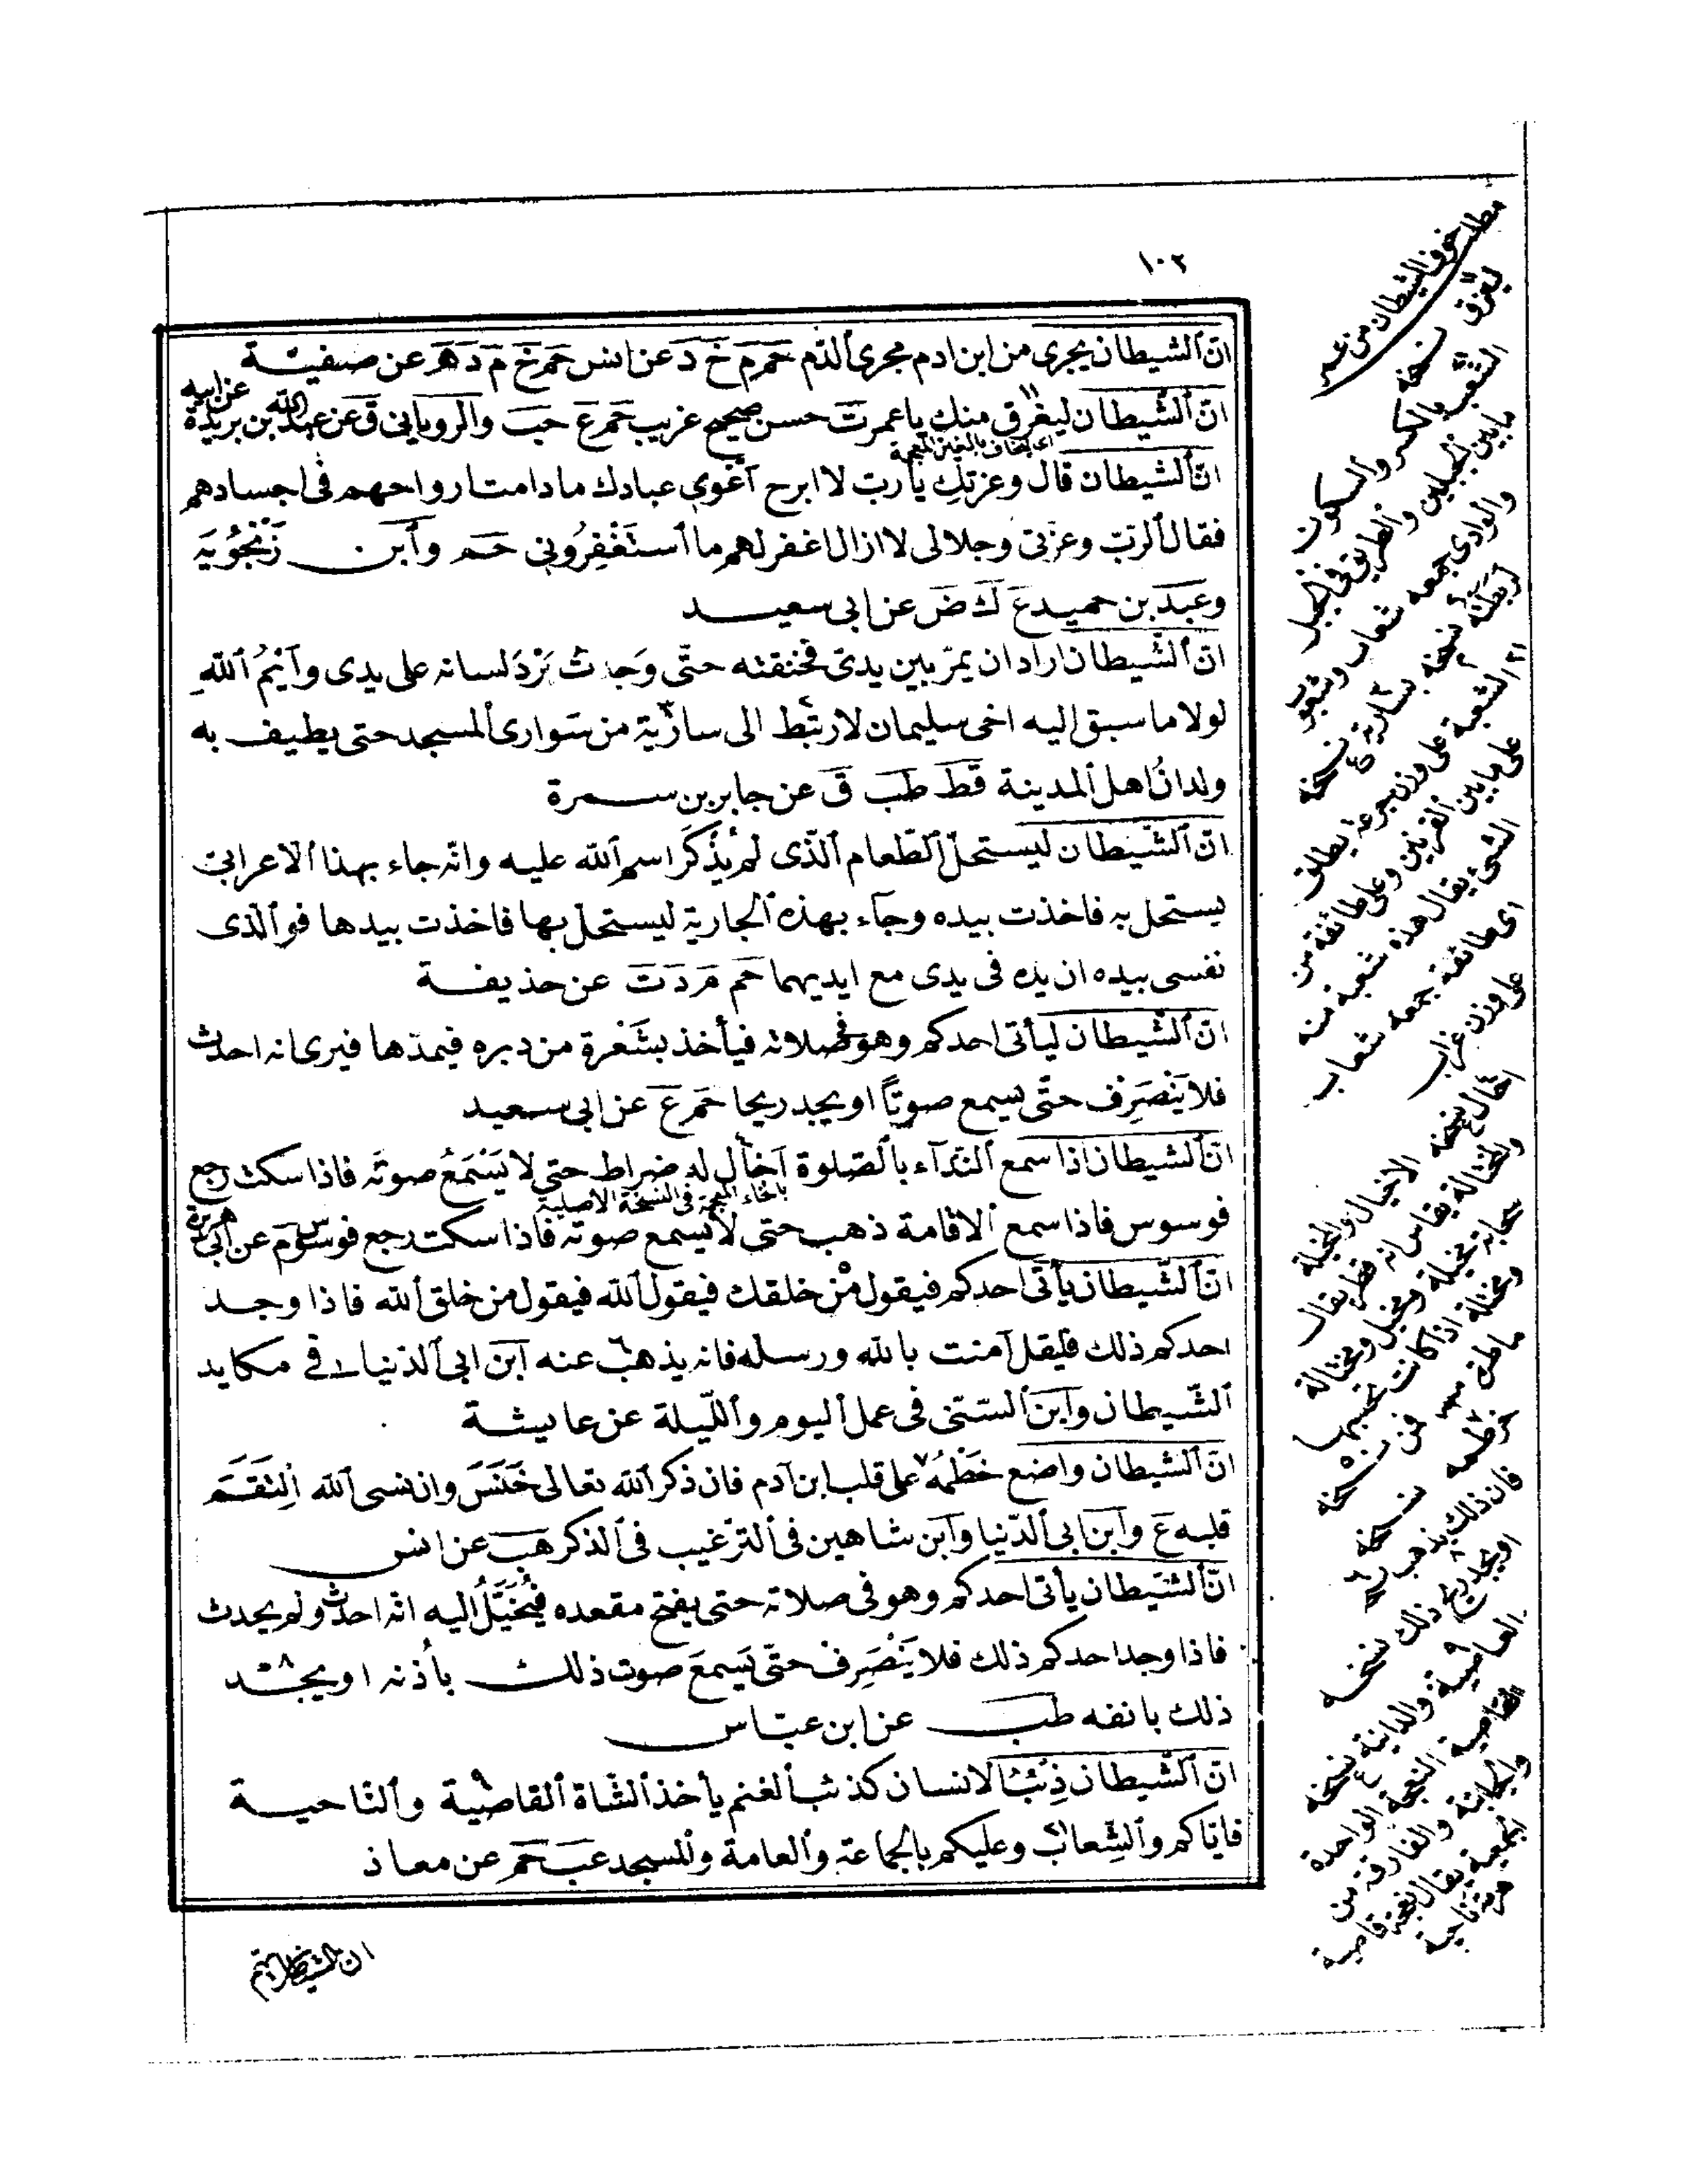 ١٠٢
انّ الشيطان يجرى من ابن ادم مجرى الدّم حم م خ د عن انس حم خ م د ه عن صفيّة
انّ الشّيطان ليغرق منك يا عمر ت حسن صحيح غريب حم ع حب والرويانى ق عن عبد الله بن بريدة عن ابيه
انّ الشيطان قال وعزتك يا رب لا ابرح اغوى عبادك ما دامت ارواحهم فى اجسادهم
فقال الربّ وعزتى وجلالى لا ازال اغفر لهم ما استَغْفِرُونى حم وابن زَنْجُوُيَه
وعبد بن حميد ع ك ض عن ابى سعيد
انّ الشّيطان اراد ان يمرّ بين يدىّ فخنقته حتّى وَجدتُ بَرْدَ لسانه على يدى وَاَيْمُ اللهِ
لولا ما سبق اليه اخى سليمان لارتبط الى سارية من سَوارى المسجد حتى يطيف به
ولدانُ اهل المدينة قط طب ق عن جابر بن سمرة
انّ الشّيطان ليستحلّ الطّعام الّذى لم يُذْكَرِ اسم الله عليه وانّه جاء بهذا الاعرابىّ
يستحل به فاخذت بيده وجآء بهذه الجارية ليستحلّ بها فاخذت بيدها فو الّذى
نفسى بيده ان يده فى يدى مع ايديهما حم م د ت عن حذيفة
انّ الشّيطان ليأتى احدكم وهو فى صلاته فيأخذ بشَعْرة من دبره فيمدّها فيرى انه احدث
فلا يَنْصَرِف حتّى يسمع صوتًا او يجد ريحا حم ع عن ابى سعيد
انّ الشيطان اذا سمع النّدآء بالصّلوة اَخَالَ له ضراط حتى لا يَسْمَعُ صوتَه فاذا سكت رجع
بالخاء المعجمة فى النسخة الاصلية
فوسوس فاذا سمع الاقامة ذهب حتى لا يسمع صوته فاذا سكت رجع فوسوس م عن ابى هريرة
انّ الشّيطان يأتى احدكم فيقول مَنْ خلقك فيقول الله فيقول من خلق الله فاذا وجد
احدكم ذلك فليقل آمنت بالله ورسله فانه يذهب عنه ابن ابى الدّنيا فى مكايد
الشّيطان وابن السّنّى فى عمل اليوم واللّيلة عن عايشة
انّ الشيطان واضع خَطْمَهُ على قلب ابن آدم فان ذكر الله تعالى خَنَسَ وان نسى الله اِلْتَقَمَ
قلبه ع وابن ابى الدّنيا وابن شاهين فى الترّغيب فى الذكر هب عن انس
انّ الشّيطان يأتى احدكم وهو فى صلاته حتى يفتح مقعده فَيُخَيَّلُ اليه انّه احدث ولم يحدث
فاذا وجد احدكم ذلك فلا يَنْصَرِف حتّى يَسمعَ صوت ذلك بأُذنه او يجد
ذلك بانفه طب عن ابن عبّاس
انّ الشّيطان ذِئْبُ الانسان كذئب الغنم يأخذ الشّاة القاصية والنّاحية
فايّاكم والشِّعاب وعليكم بالجماعة والعامة والمسجد عب حم عن معاذ
مطلب خوف الشيطان من عمر
ليغرق نسخة
الشعب بالكسر والسكون
ما بين الجبلين والطريق فى الجبل
والوادى جمعه شعاب
ربطته نسخة
سارية نسخة
الشعبة على وزن جرعة يطلق
على ما بين القرنين وعلى طائفة من
الشئ يقال هذه شعبة منه
اى طائفة جمعه شعاب
نسخة
فان ذلك يذهب
او يجد ريح ذلك نسخة
القاصية والدانية نسخة